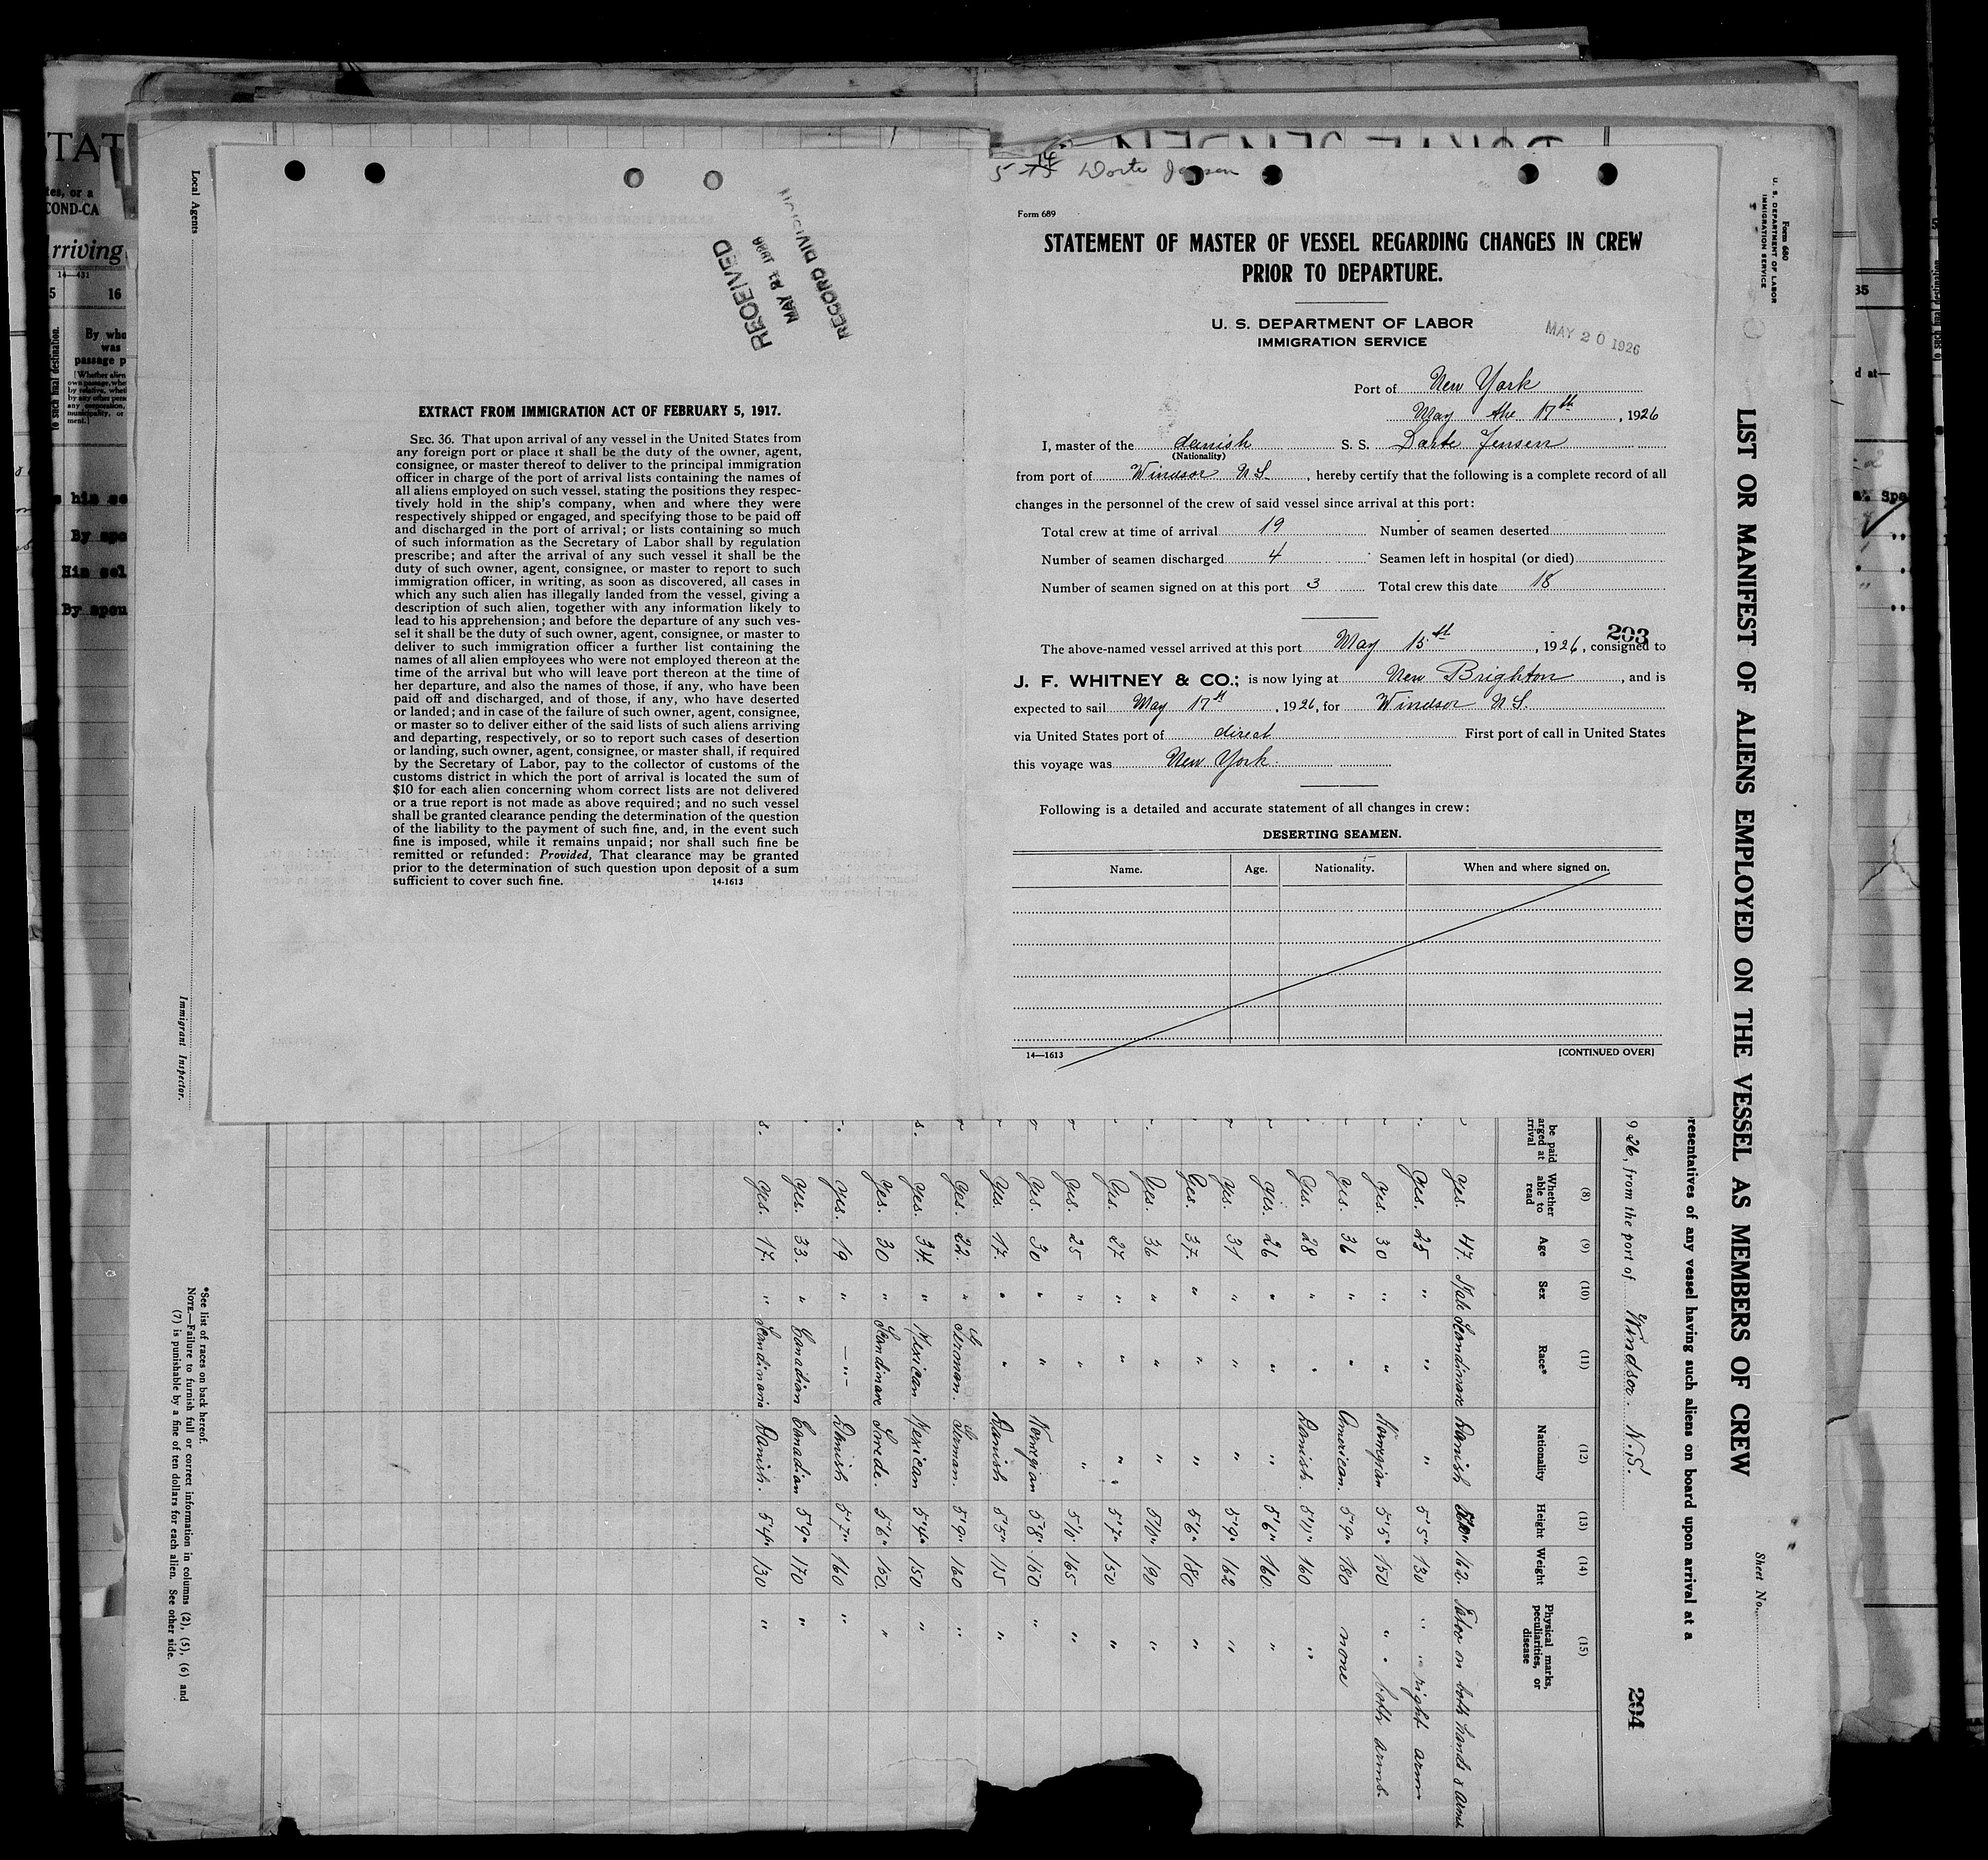 5-14 Dorte Jensen
Form 689
STATEMENT OF MASTER OF VESSEL REGARDING CHANGES IN CREW
PRIOR TO DEPARTURE.
U. S. DEPARTMENT OF LABOR
IMMIGRATION SERVICE
MAY 20 1926
Port of New York
May the 17th, 1926
I, master of the danish S. S. Dorte Jensen
(Nationality)
from port of Windsor N S., hereby certify that the following is a complete record of all
changes in the personnel of the crew of said vessel since arrival at this port:
Total crew at time of arrival 19 Number of seamen deserted
Number of seamen discharged 4 Seamen left in hospital (or died)
Number of seamen signed on at this port 3 Total crew this date 18
293
The above-named vessel arrived at this port May 15th, 1926, consigned to
J. F. WHITNEY & CO.; is now lying at New Brighton, and is
expected to sail May 17th, 1926, for Windsor N S.
via United States port of direct First port of call in United States
this voyage was New York.
Following is a detailed and accurate statement of all changes in crew:
DESERTING SEAMEN.
Name. Age. Nationality. When and where signed on.
14—1613 [CONTINUED OVER]
RECEIVED
MAY 21 1926
RECORD DIVISION
EXTRACT FROM IMMIGRATION ACT OF FEBRUARY 5, 1917.
SEC. 36. That upon arrival of any vessel in the United States from
any foreign port or place it shall be the duty of the owner, agent,
consignee, or master thereof to deliver to the principal immigration
officer in charge of the port of arrival lists containing the names of
all aliens employed on such vessel, stating the positions they respec-
tively hold in the ship's company, when and where they were
respectively shipped or engaged, and specifying those to be paid off
and discharged in the port of arrival; or lists containing so much
of such information as the Secretary of Labor shall by regulation
prescribe; and after the arrival of any such vessel it shall be the
duty of such owner, agent, consignee, or master to report to such
immigration officer, in writing, as soon as discovered, all cases in
which any such alien has illegally landed from the vessel, giving a
description of such alien, together with any information likely to
lead to his apprehension; and before the departure of any such ves-
sel it shall be the duty of such owner, agent, consignee, or master to
deliver to such immigration officer a further list containing the
names of all alien employees who were not employed thereon at the
time of the arrival but who will leave port thereon at the time of
her departure, and also the names of those, if any, who have been
paid off and discharged, and of those, if any, who have deserted
or landed; and in case of the failure of such owner, agent, consignee,
or master so to deliver either of the said lists of such aliens arriving
and departing, respectively, or so to report such cases of desertion
or landing, such owner, agent, consignee, or master shall, if required
by the Secretary of Labor, pay to the collector of customs of the
customs district in which the port of arrival is located the sum of
$10 for each alien concerning whom correct lists are not delivered
or a true report is not made as above required; and no such vessel
shall be granted clearance pending the determination of the question
of the liability to the payment of such fine, and, in the event such
fine is imposed, while it remains unpaid; nor shall such fine be
remitted or refunded: Provided, That clearance may be granted
prior to the determination of such question upon deposit of a sum
sufficient to cover such fine. 14-1613
Form 680
U. S. DEPARTMENT OF LABOR
IMMIGRATION SERVICE
LIST OR MANIFEST OF ALIENS EMPLOYED ON THE VESSEL AS MEMBERS OF CREW
Sheet No.
resentatives of any vessel having such aliens on board upon arrival at a
926, from the port of Windsor. N.S. 294
(8) (9) (10) (11) (12) (13) (14) (15)
Whether able to read Age Sex Race* Nationality Height Weight Physical marks, peculiarities, or disease
yes. 47. Male Scandinave Danish 162. Tatoo on both hands & arms
yes. 25 " " " 5'5" 130 " " right arm
yes. 30 " " Norwegian 5'5" 150 " " both arms.
yes. 36 " " American. 5'9" 180 none
yes. 28 " " Danish. 5'11" 160 "
yes. 26 " " " 5'6" 160. "
yes. 31 " " " 5'9" 162 "
yes. 37. " " " 5'6" 180 "
yes. 36 " " " 5'10" 190 "
yes. 27 " " " 5'7" 150 "
yes. 25 " " " 5'10" 165 "
yes. 30 " " Norwegian 5'8" 150 "
yes. 17. " " Danish 5'5" 115 "
yes. 22. " German. German. 5'9" 160 "
yes. 34. " Mexican Mexican 5'4" 150 "
yes. 30 " Scandinave Swede. 5'6" 150. "
yes. 19 " —"— Danish 5'7" 160 "
yes. 33. " Canadian Canadian 5'9" 170 "
yes. 17. " Scandinavia Danish. 5'4" 130 "
Local Agents
Immigrant Inspector.
*See list of races on back hereof.
NOTE.—Failure to furnish full or correct information in columns (2), (5), (6) and
(7) is punishable by a fine of ten dollars for each alien. See other side.
rriving
14—431
16
By who
was
passage p
By spo
His sel
By spou